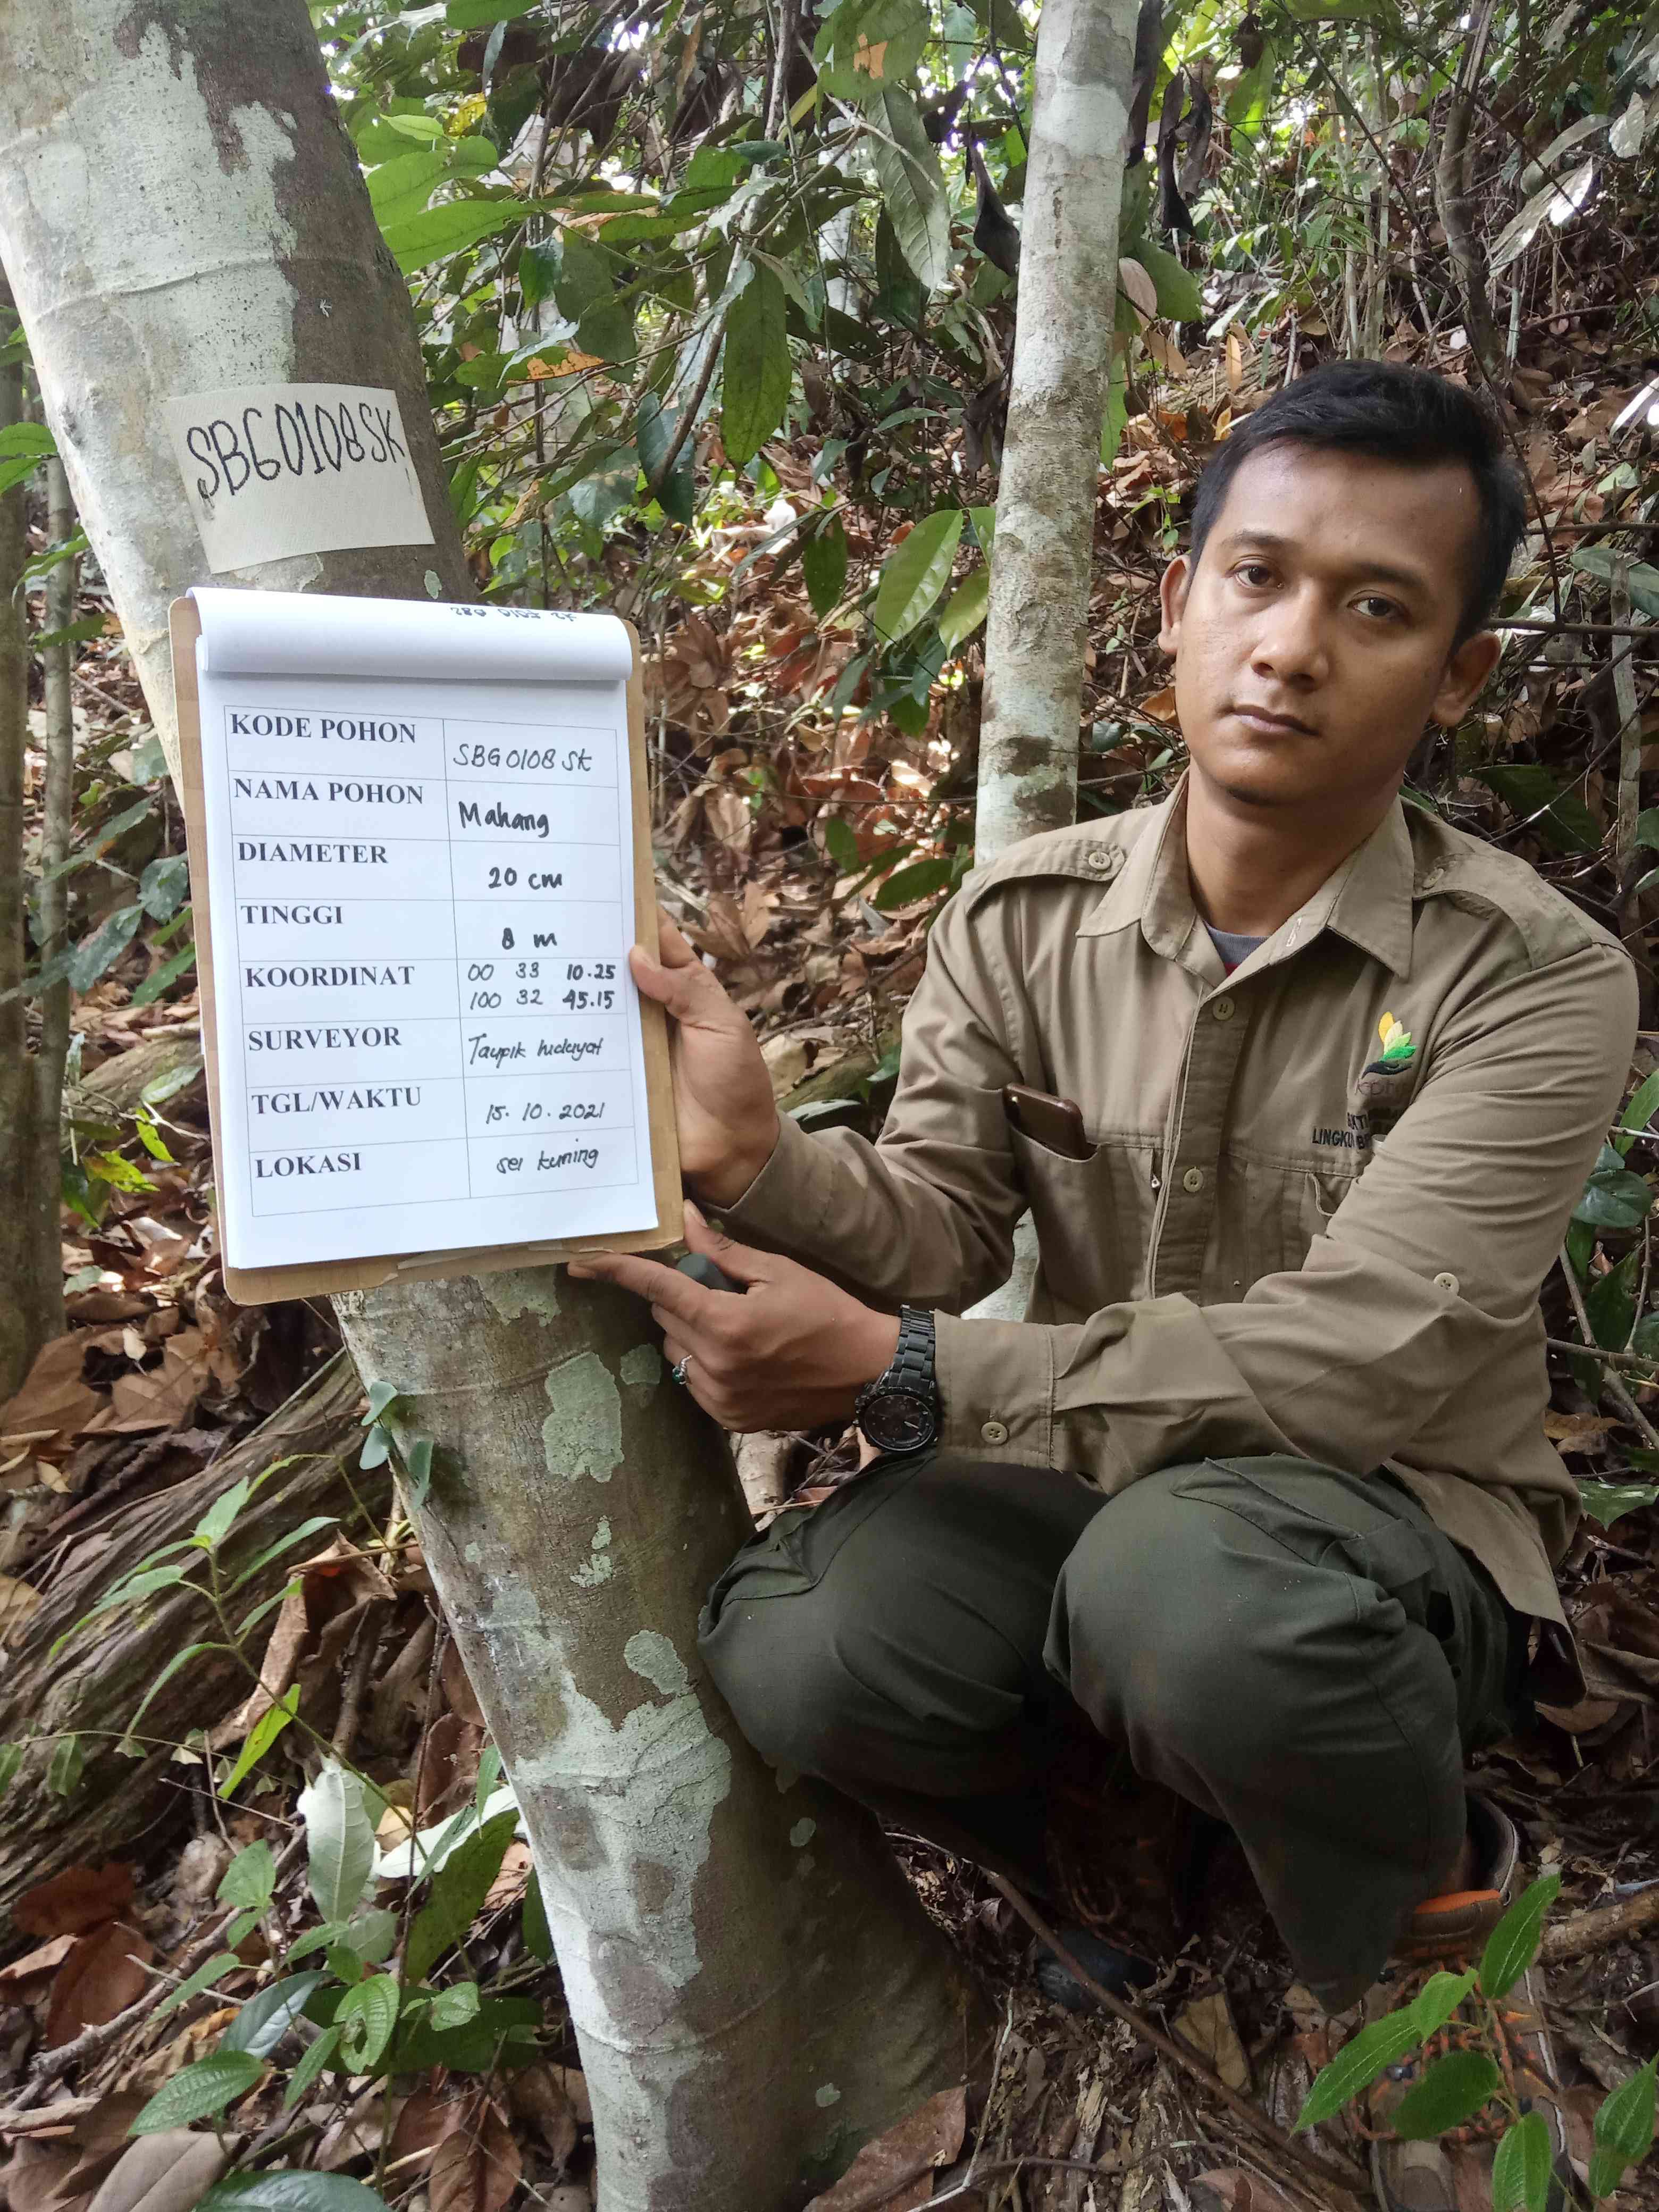 SBG0108SK
KODE POHON SBG0108SK
NAMA POHON Mahang
DIAMETER 20 cm
TINGGI 8 m
KOORDINAT 00 33 10.25
100 32 45.15
SURVEYOR Taupik hidayat
TGL/WAKTU 15.10.2021
LOKASI sei kuning